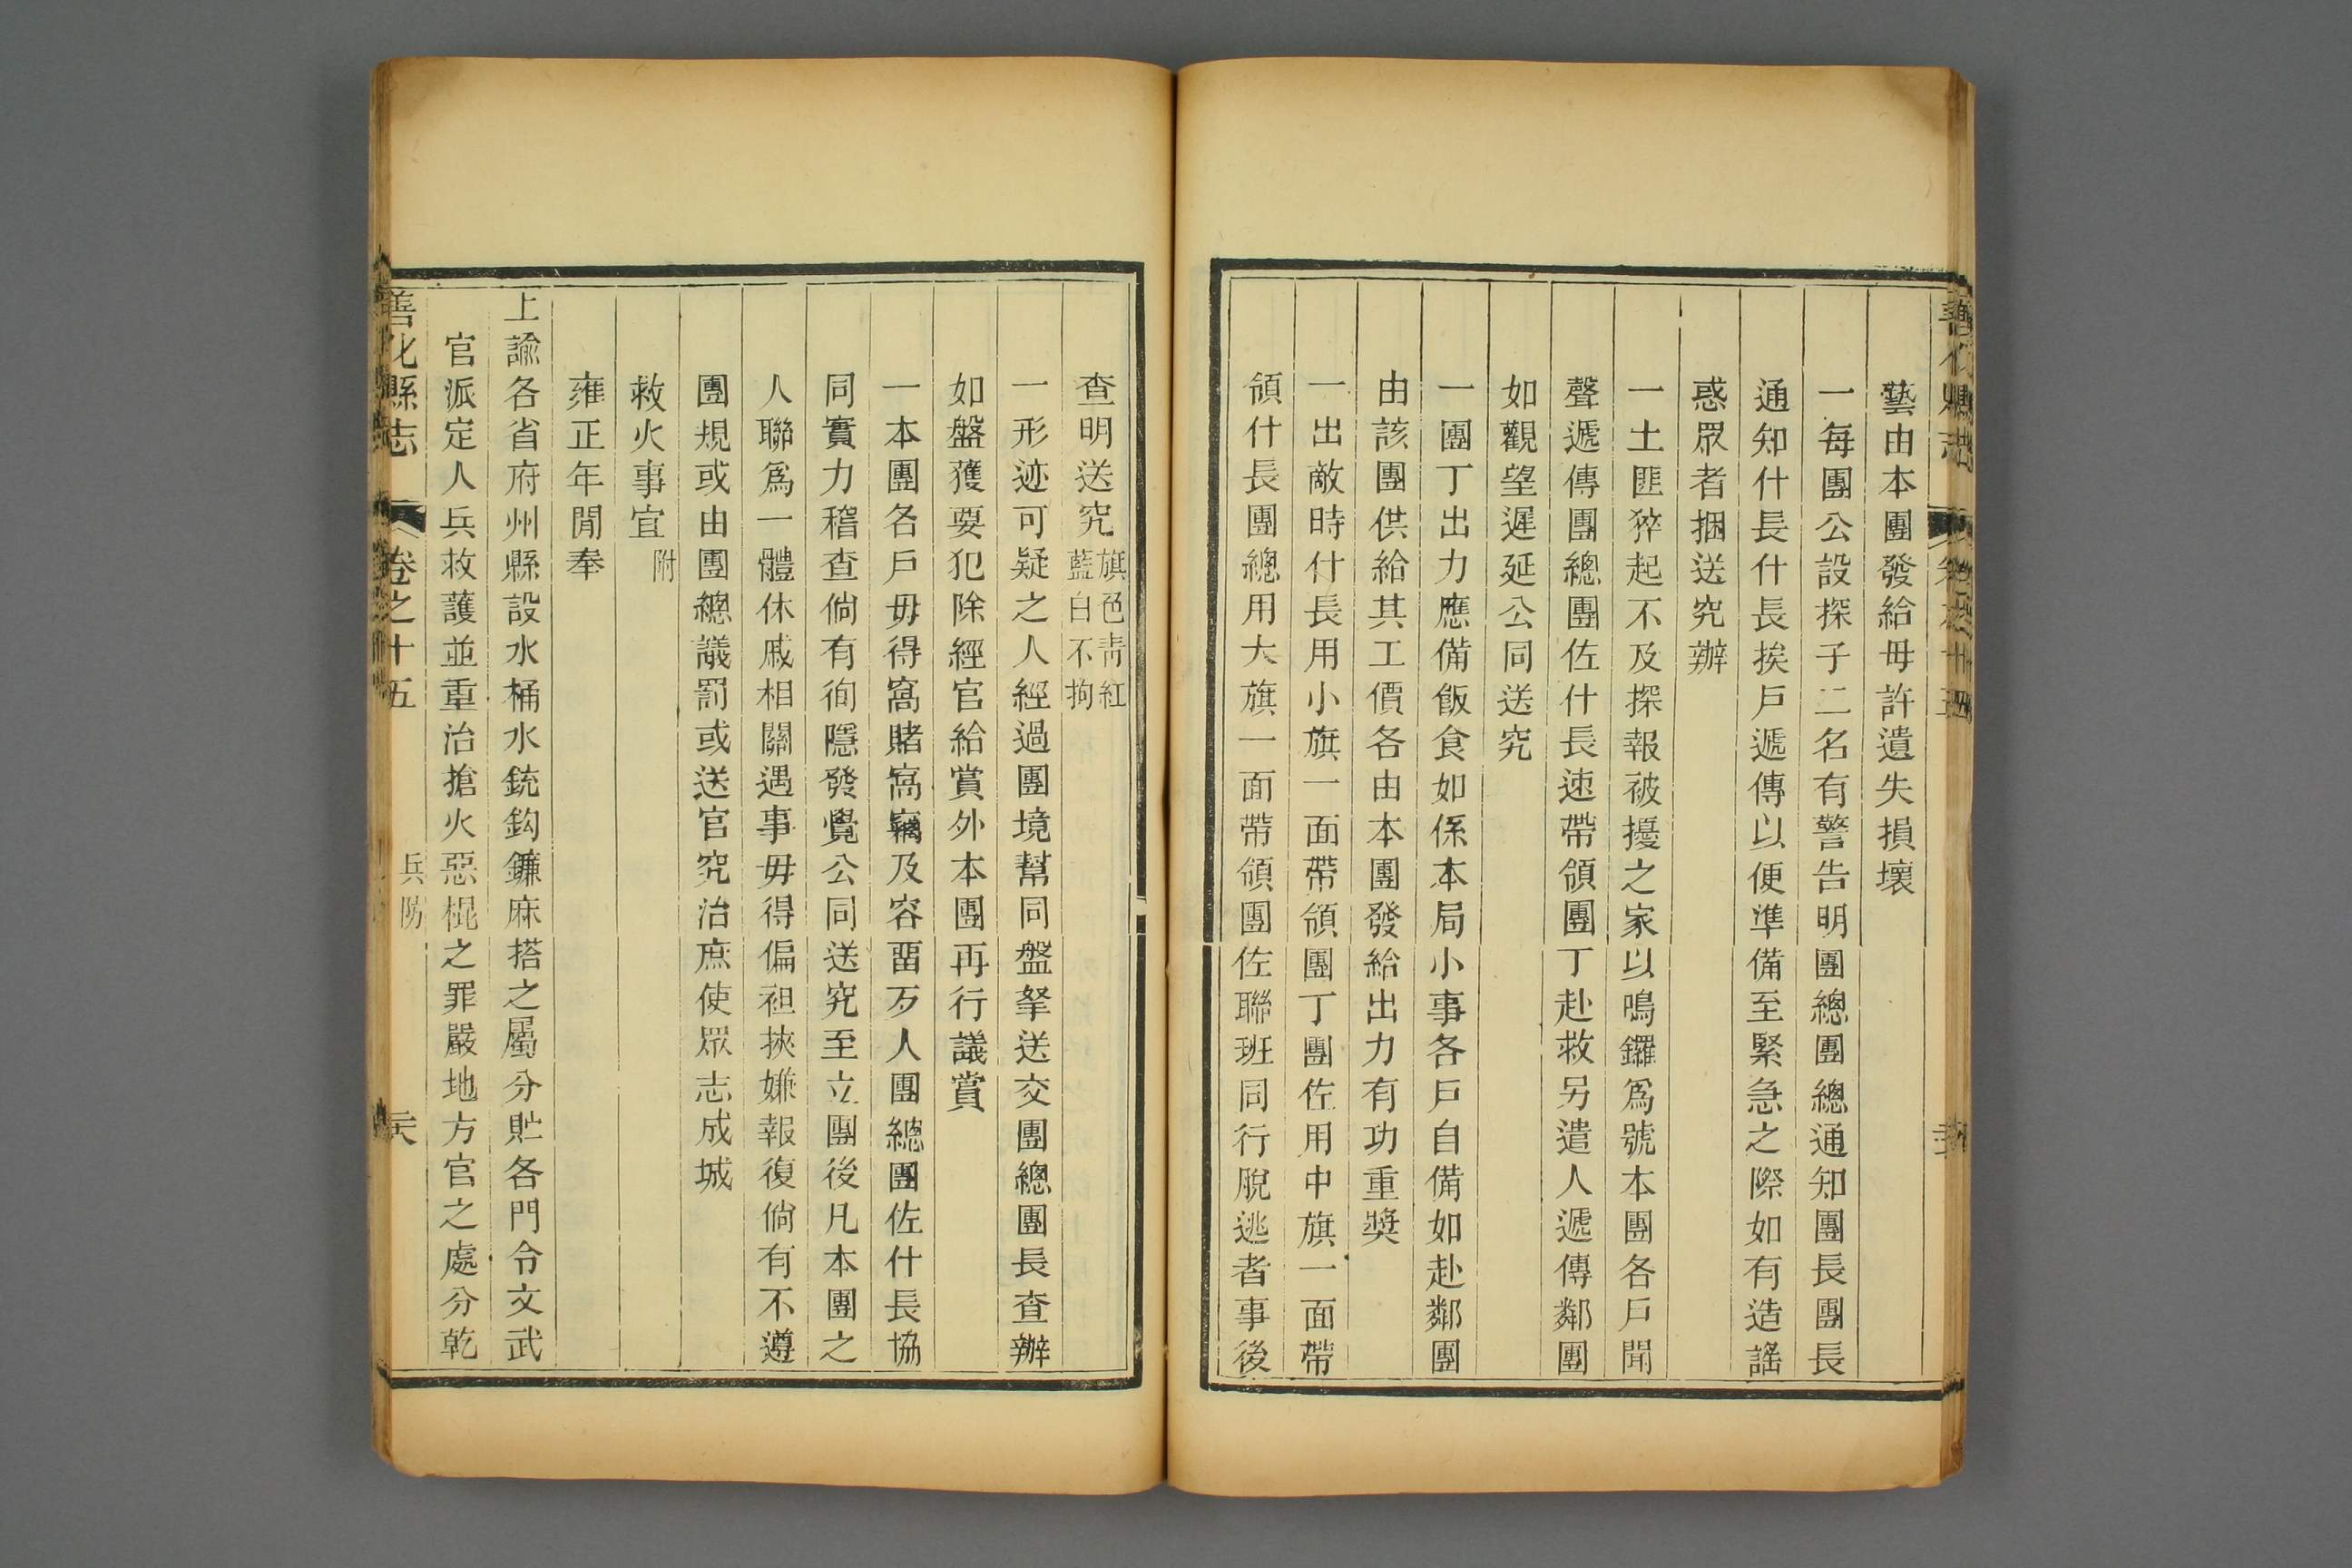 藝由本團發給毋許遺失損壞
一每團公設探子二名有警告明團總團總通知團長團長
通知什長什長挨戶遞傳以便準備至緊急之際如有造謠
惑眾者捆送究辦
一土匪猝起不及探報被擾之家以鳴鑼爲號本團各戶聞
聲遞傳團總團佐什長速帶領團丁赴救另遣人遞傳鄰團
如觀望遲延公同送究
一團丁出力應備飯食如係本局小事各戶自備如赴鄰團
由該團供給其工價各由本團發給出力有功重獎
一出敵時什長用小旗一面帶領團丁團佐用中旗一面帶
領什長團總用大旗一面帶領團佐聯班同行脫逃者事後
查明送究旗色靑紅藍白不拘
一形迹可疑之人經過團境幫同盤拏送交團總團長查辦
如盤獲要犯除經官給賞外本團再行議賞
一本團各戶毋得窩賭窩竊及容畱歹人團總團佐什長協
同實力稽查倘有徇隱發覺公同送究至立團後凡本團之
人聯爲一體休戚相關遇事毋得偏袒挾嫌報復倘有不遵
團規或由團總議罰或送官究治庶使眾志成城
救火事宜 附
雍正年閒奉
上諭各省府州縣設水桶水銃鈎鐮麻搭之屬分貯各門令文武
官派定人兵救護並重治搶火惡棍之罪嚴地方官之處分乾
善化縣志 卷之十五 兵防